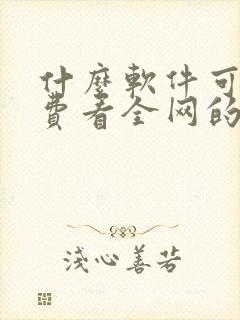 什麼軟件可
費看全网的
淺心善若